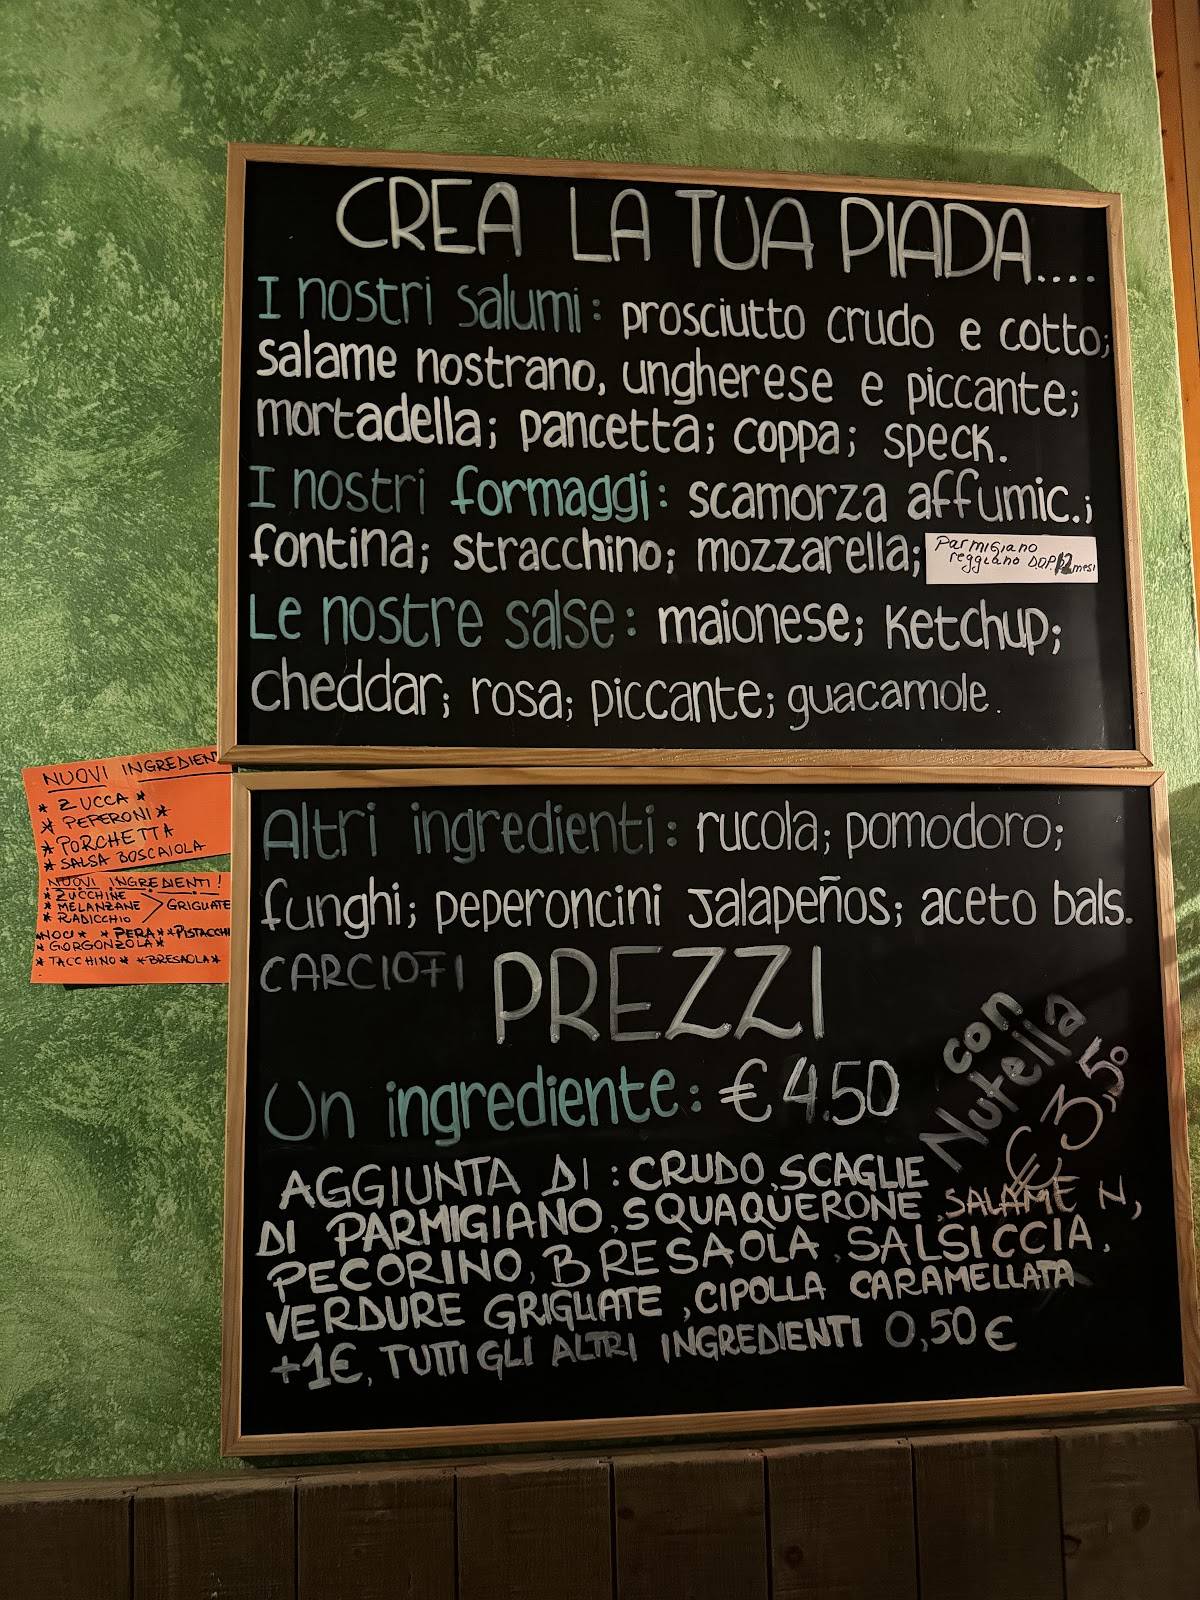 CREA LA TUA PIADA....
I nostri salumi: prosciutto crudo e cotto;
salame nostrano, ungherese e piccante;
mortadella; pancetta; coppa; speck.
I nostri formaggi: scamorza affumic.;
fontina; stracchino; mozzarella;
Parmigiano
reggiano D.O.P. 12 mesi
Le nostre salse: maionese; ketchup;
cheddar; rosa; piccante; guacamole.
NUOVI INGREDIENT
* ZUCCA *
* PEPERONI *
* PORCHETTA
* SALSA BOSCAIOLA
NUOVI INGREDIENTI!
* ZUCCHINE
* MELANZANE
* RADICCHIO
GRIGLIATE
*NOCI* *PERA* *PISTACCHI
* GORGONZOLA *
* TACCHINO * *BRESAOLA*
Altri ingredienti: rucola; pomodoro;
funghi; peperoncini Jalapeños; aceto bals.
CARCIOFI
PREZZI
con
Nutella
€ 3,50
Un ingrediente: € 4.50
AGGIUNTA DI: CRUDO, SCAGLIE
DI PARMIGIANO, SQUAQUERONE, SALAME N,
PECORINO, BRESAOLA, SALSICCIA,
VERDURE GRIGLIATE, CIPOLLA CARAMELLATA
+1€, TUTTI GLI ALTRI INGREDIENTI 0,50€